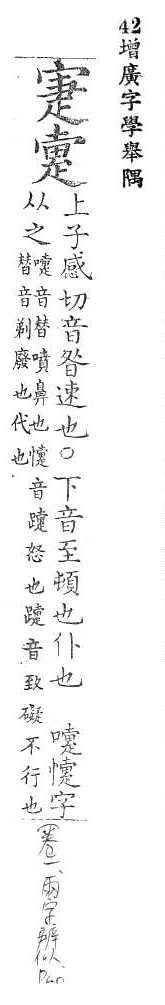 42增廣字學舉隅
寁疐
上子感切音昝速也○下音至頓也仆也 嚏懥字
从之
嚏音替噴鼻也懥
替音剃廢也代也
音怒也音致礙不行也
卷一、兩字辨似